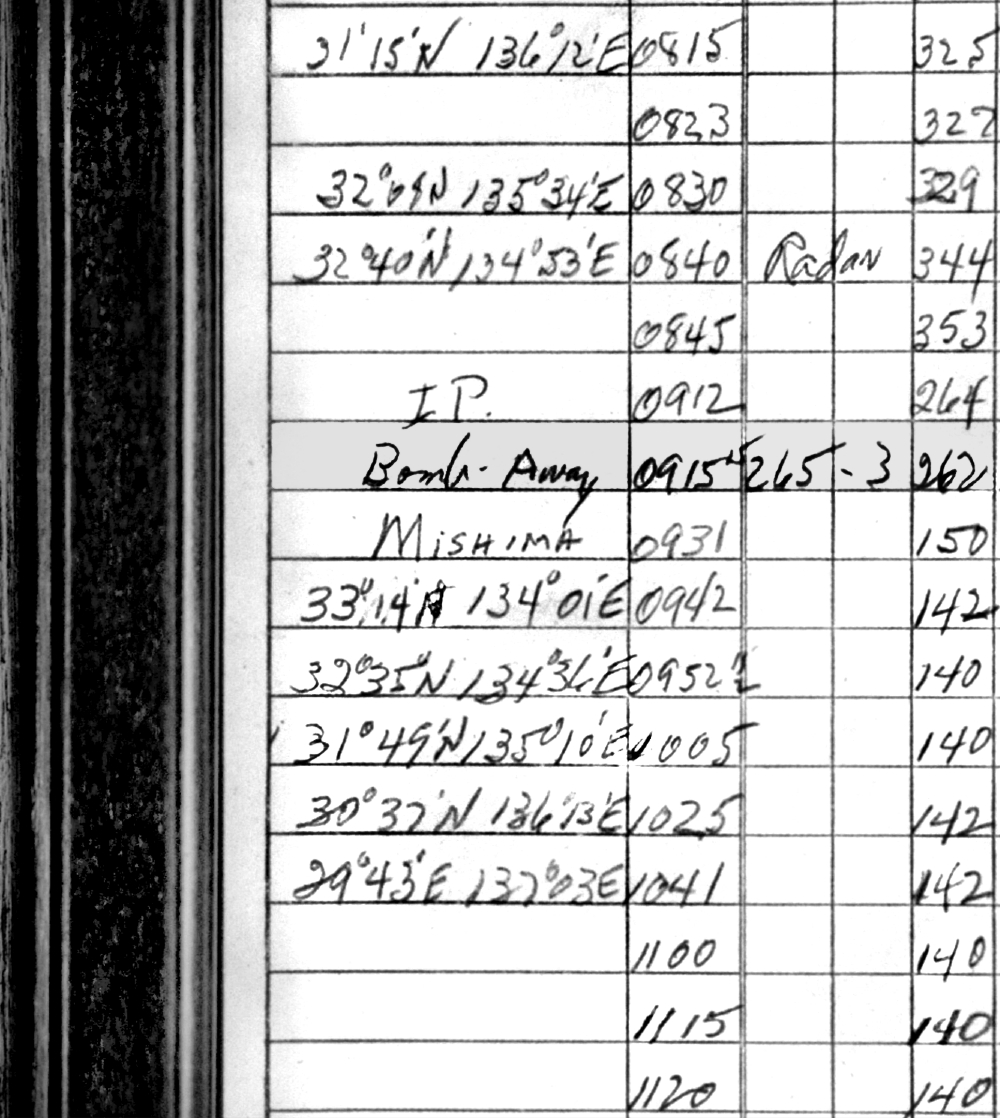 31'15'N 136°12'E 0815 325
0823 327
32°09N 135°34'E 0830 329
32°40'N 134°53'E 0840 Radar 344
0845 353
I P. 0912 264
Bomb- Away 0915 15 265 - 3 262
MiSHIMA 0931 150
33°14'N 134°01'E 0942 142
32°35'N 134°36'E 0952½ 140
31°49'N 135°10'E 1005 140
30°37'N 136°13'E 1025 142
29°43'E 137°03E 1041 142
1100 140
1115 140
1120 140